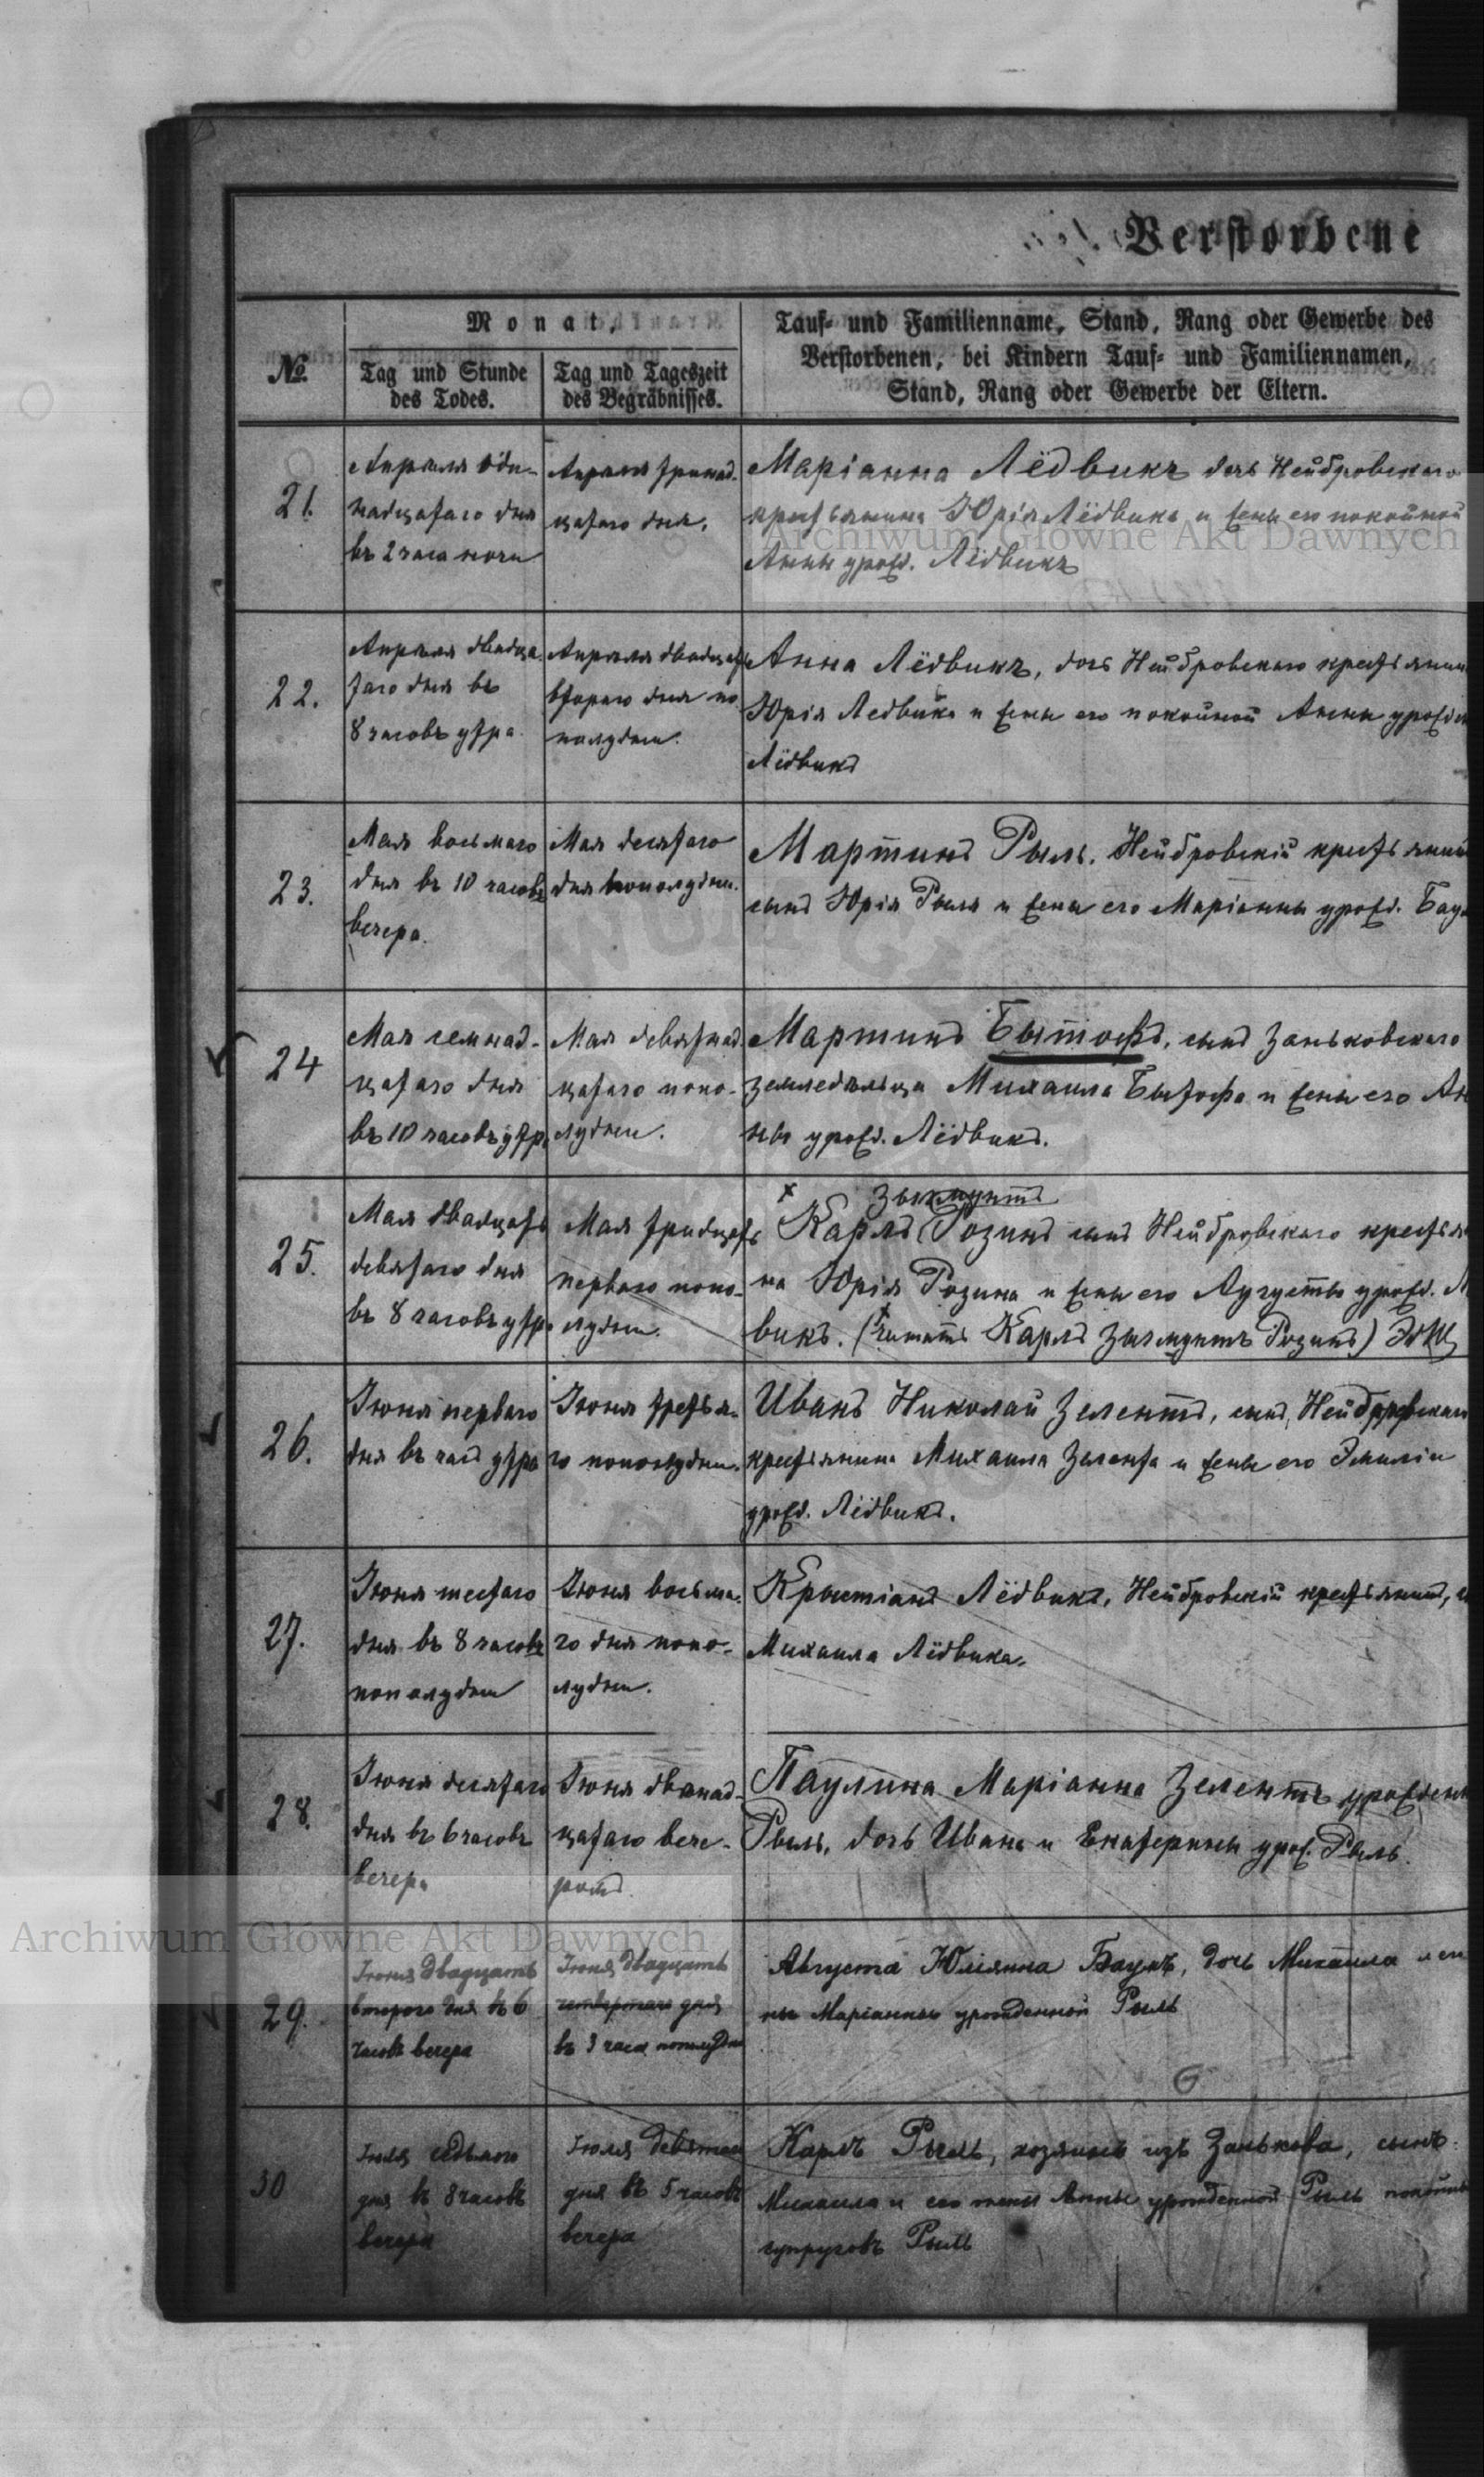 Verstorbene
№
Monat,
Tag und Stunde
des Todes.
Tag und Tageszeit
des Begräbnisses.
Tauf- und Familienname, Stand, Rang oder Gewerbe des
Verstorbenen, bei Kindern Tauf- und Familiennamen,
Stand, Rang oder Gewerbe der Eltern.
21.
Апрѣля оди-
надцатаго дня
въ 2 часа ночи
Апрѣля тринад-
цатаго дня.
Маріанна Лёдвикъ дочь Нейбровскаго
крестьянина Юрія Лёдвика и жены его покойной
Анны урожд. Лёдвикъ
22.
Апрѣля двадца-
таго дня въ
8 часовъ утра
Апрѣля двадцать
втораго дня по
полудни.
Анна Лёдвикъ, дочь Нейбровскаго крестьянин
Юрія Ледвика и жены его покойной Анны урожден
Лёдвикъ
23.
Мая восьмаго
дня въ 10 часовъ
вечера.
Мая десятаго
дня пополудни.
Мартинъ Рыль, Нейбровскій крестьянинъ
сынъ Юрія Рыля и жены его Маріанны урожд. Бау
24
Мая семнад-
цатаго дня
въ 10 часовъ утр.
Мая девятнад
цатаго попо-
лудни.
Мартинъ Бытофъ, сынъ Заньковскаго
земледѣльца Михаила Бытофа и жены его Ан
ны урожд. Лёдвикъ.
25.
Мая двадцать
девятаго дня
въ 8 часовъ утр.
Мая тридцать
перваго попо-
лудни.
x Зыкмунтъ
Карлъ Розинъ сынъ Нейбровскаго крестья
на Юрія Розина и жены его Аугусты урожд. Л
викъ. (x читать Карлъ Зыгмунтъ Розинъ)
26.
Іюня перваго
дня въ часъ утра
Іюня третья-
го пополудни.
Иванъ Николай Зелентъ, сынъ Нейбровскаго
крестьянина Михаила Зелента и жены его Эмиліи
урожд. Лёдвикъ.
27.
Іюня шестаго
дня въ 8 часовъ
пополудни
Іюня восьма-
го дня попо-
лудни.
Крыстіанъ Лёдвикъ, Нейбровскій крестьянинъ,
Михаила Лёдвика.
28.
Іюня десятаго
дня въ 6 часовъ
вечера
Іюня двѣнад-
цатаго вече-
ромъ.
Паулина Маріанна Зелентъ урожден
Рыль, дочь Ивана и Екатерины урож. Рыль.
29.
Іюня двадцать
второго дня въ 6
часовъ вечера
Іюня двадцать
четвертаго дня
въ 3 часа пополудни
Августа Юліянна Баукъ, дочь Михаила и же
ны Маріанны урожденной Рыль
30
Іюля седьмого
дня въ 8 часовъ
вечера
Іюля девятаго
дня въ 5 часовъ
вечера
Карлъ Рыль, хозяинъ изъ Занькова, сынъ
Михаила и его жены Анны урожденной Рыль покойныхъ
супруговъ Рыль
Archiwum Główne Akt Dawnych
Archiwum Główne Akt Dawnych